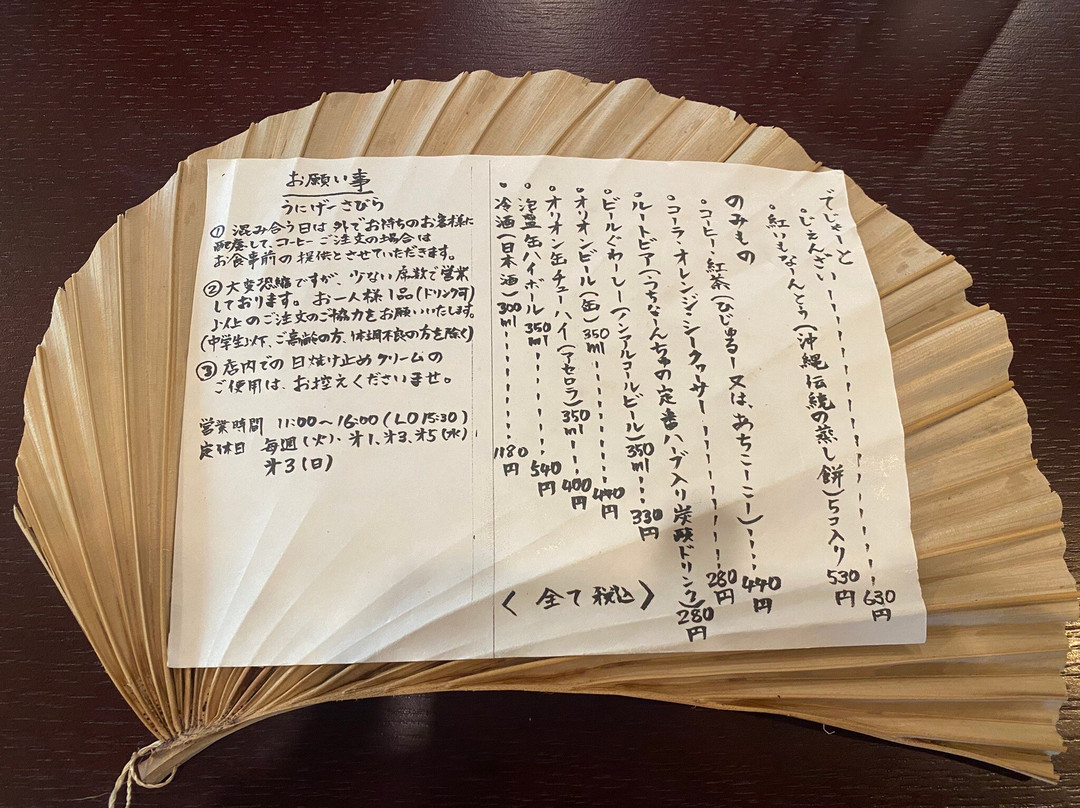 でじゃーと
。じぇんざい 630円
。紅いもなーんとぅ(沖縄伝統の蒸し餅)5コ入り 530円
のみもの
。コーヒー・紅茶(ひじゅるー又は、あちこーこー) 440円
。コーラ・オレンジ・シークヮーサー 280円
。ルートビア(うちなーんちゅの定番ハーブ入り炭酸ドリンク) 280円
・ビールぐゎーしー(ノンアルコールビール)350ml 330円
・オリオンビール(缶)350ml 440円
・オリオン缶チューハイ(アセロラ)350ml 400円
・泡盛缶ハイボール350ml 540円
・冷酒(日本酒)300ml 1180円
〈全て税込〉
お願い事
うにげーさびら
① 混み合う日は外でお待ちのお客様に
配慮して、コーヒーご注文の場合は
お食事前の提供とさせていただきます。
② 大変恐縮ですが、少ない席数で営業
しております。お一人様1品(ドリンク可)
以上のご注文のご協力をお願いいたします。
(中学生以下、ご高齢の方、体調不良の方を除く)
③ 店内での日焼け止めクリームの
ご使用は、お控えくださいませ。
営業時間 11:00〜16:00(LO15:30)
定休日 毎週(火)・第1、第3、第5(水)
第3(日)